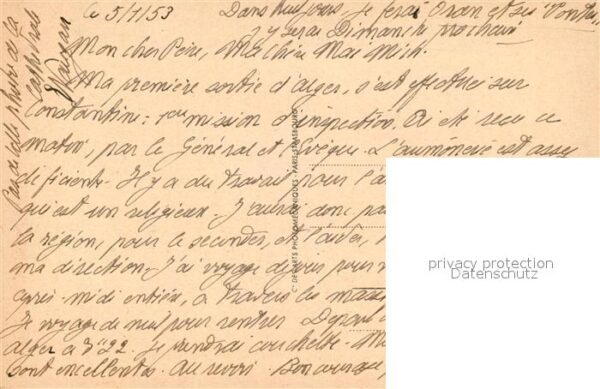 le 5/7/53
Dans huit jours, je ferai Oran et ses
J'y serai Dimanche prochain
Mon cher Père, Ma chère Mai Mich.
Ma première sortie d'Alger, s'est effectuée sur
Constantine: mission d'inspection. Ai été reçu ce
matin, par le Général et l'Evêque. L'aumônerie est assez
déficiente. Il y a du travail pour l'
qui est un religieux. J'aurai donc
la région, pour le seconder, et l'aider,
ma direction. J'ai voyagé depuis pour
après-midi entière, à travers les
Je voyage de nuit pour rentrer. Départ
Alger à 7h22. Je prendrai couchette.
sont excellentes. Au revoir. Bon courage,
Pas de belle photo de la
Cathédrale
C^ie DES ARTS PHOTOMECANIQUES - PARIS-STRASBOURG
privacy protection
Datenschutz